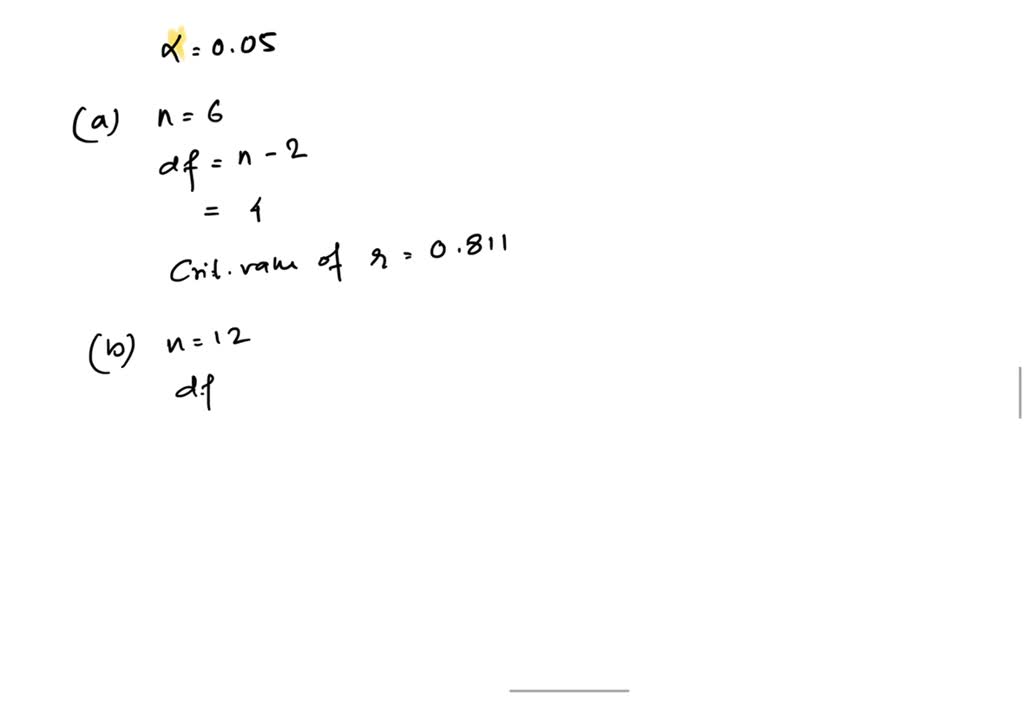 α = 0.05
(a) n = 6
df = n - 2
= 4
Crit. value of r = 0.811
(b) n = 12
df